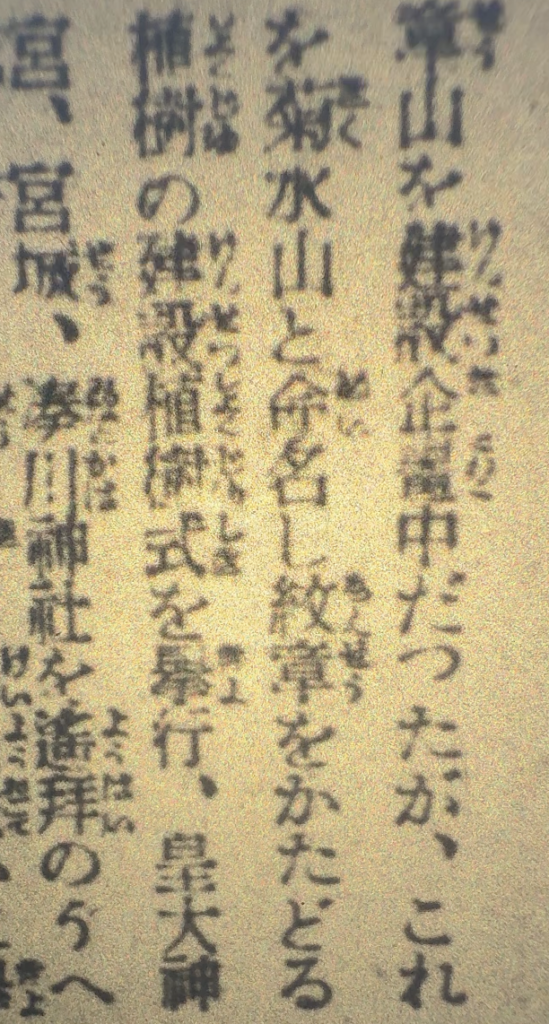 章山を建設企畫中だつたが、これ
を菊水山と命名し紋章をかたどる
植樹の建設植樹式を擧行、皇大神
宮、宮城、湊川神社を遙拜のうへ